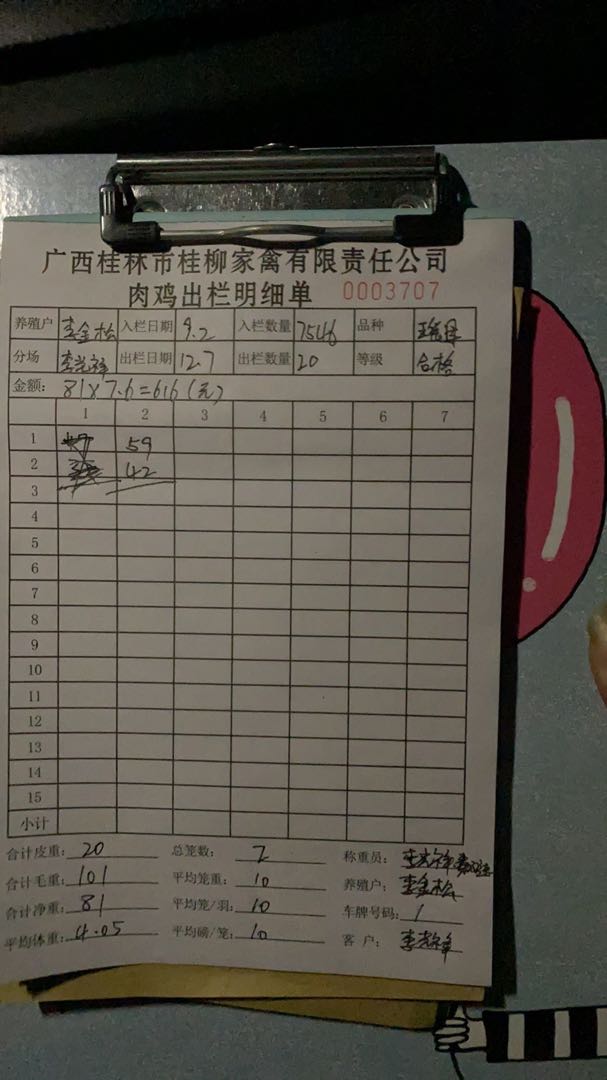 广西桂林市桂柳家禽有限责任公司
肉鸡出栏明细单 0003707
养殖户 李金松 入栏日期 9.2 入栏数量 7546 品种
分场 李光祥 出栏日期 12.7 出栏数量 20 等级 合格
金额: 81×7.6=616(元)
1 2 3 4 5 6 7
1 59
2 42
3
4
5
6
7
8
9
10
11
12
13
14
15
小计
合计皮重: 20 总笼数: 2 称重员: 李光祥
合计毛重: 101 平均笼重: 10 养殖户: 李金松
合计净重: 81 平均笼/羽: 10 车牌号码: 1
平均体重: 4.05 平均磅/笼: 10 客 户: 李光祥